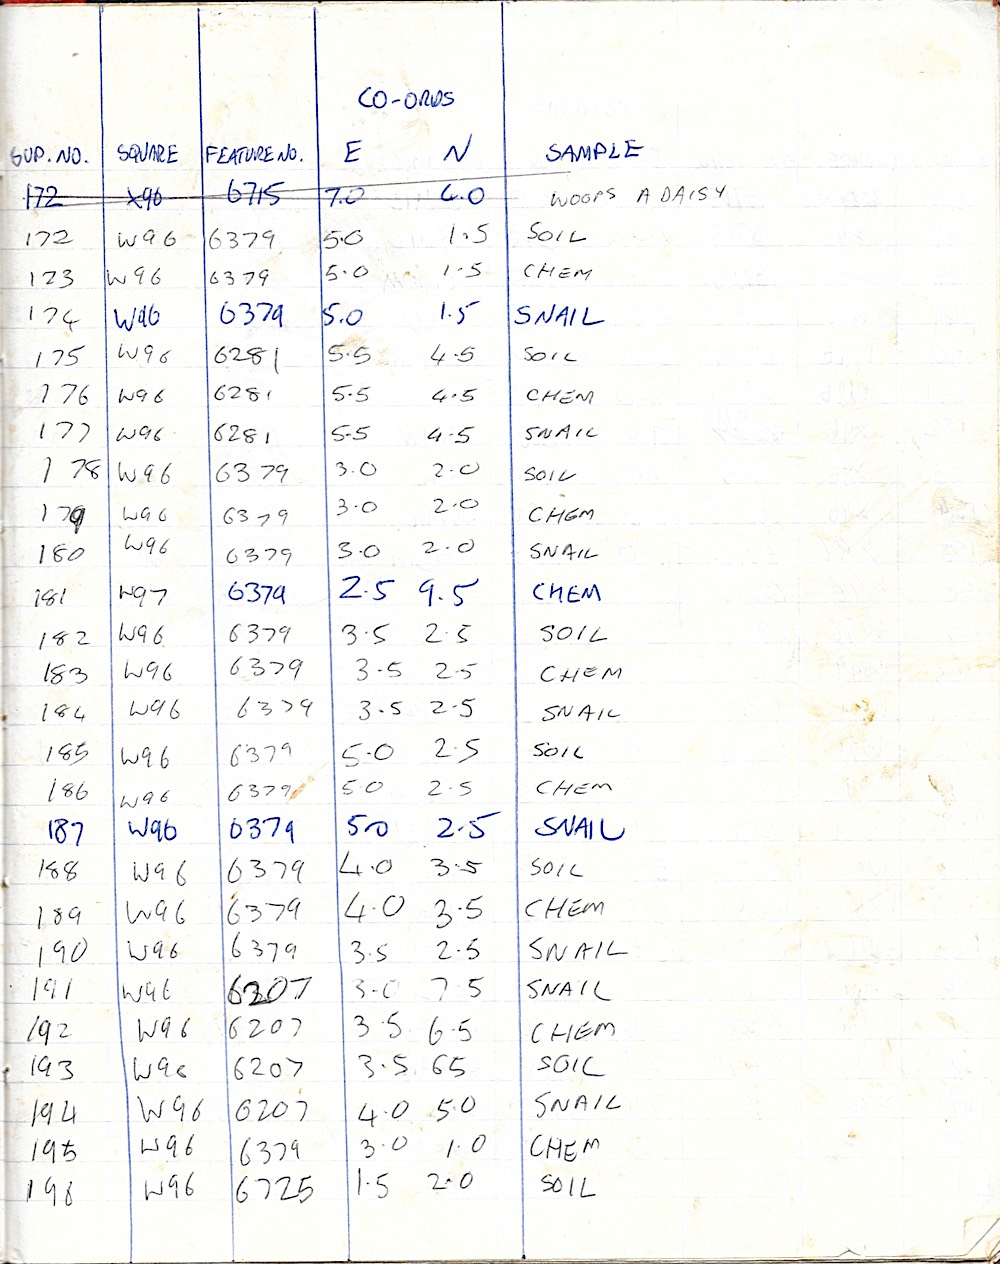 CO-ORDS
SUP. NO. SQUARE FEATURE NO. E N SAMPLE
172 X96 6715 7.0 6.0 WOOPS A DAISY
172 W96 6379 5.0 1.5 SOIL
173 W96 6379 5.0 1.5 CHEM
174 W96 6379 5.0 1.5 SNAIL
175 W96 6281 5.5 4.5 SOIL
176 W96 6281 5.5 4.5 CHEM
177 W96 6281 5.5 4.5 SNAIL
178 W96 6379 3.0 2.0 SOIL
179 W96 6379 3.0 2.0 CHEM
180 W96 6379 3.0 2.0 SNAIL
181 W97 6379 2.5 9.5 CHEM
182 W96 6379 3.5 2.5 SOIL
183 W96 6379 3.5 2.5 CHEM
184 W96 6379 3.5 2.5 SNAIL
185 W96 6379 5.0 2.5 SOIL
186 W96 6379 5.0 2.5 CHEM
187 W96 6379 5.0 2.5 SNAIL
188 W96 6379 4.0 3.5 SOIL
189 W96 6379 4.0 3.5 CHEM
190 W96 6379 3.5 2.5 SNAIL
191 W96 6207 3.0 7.5 SNAIL
192 W96 6207 3.5 6.5 CHEM
193 W96 6207 3.5 65 SOIL
194 W96 6207 4.0 5.0 SNAIL
195 W96 6379 3.0 1.0 CHEM
196 W96 6725 1.5 2.0 SOIL